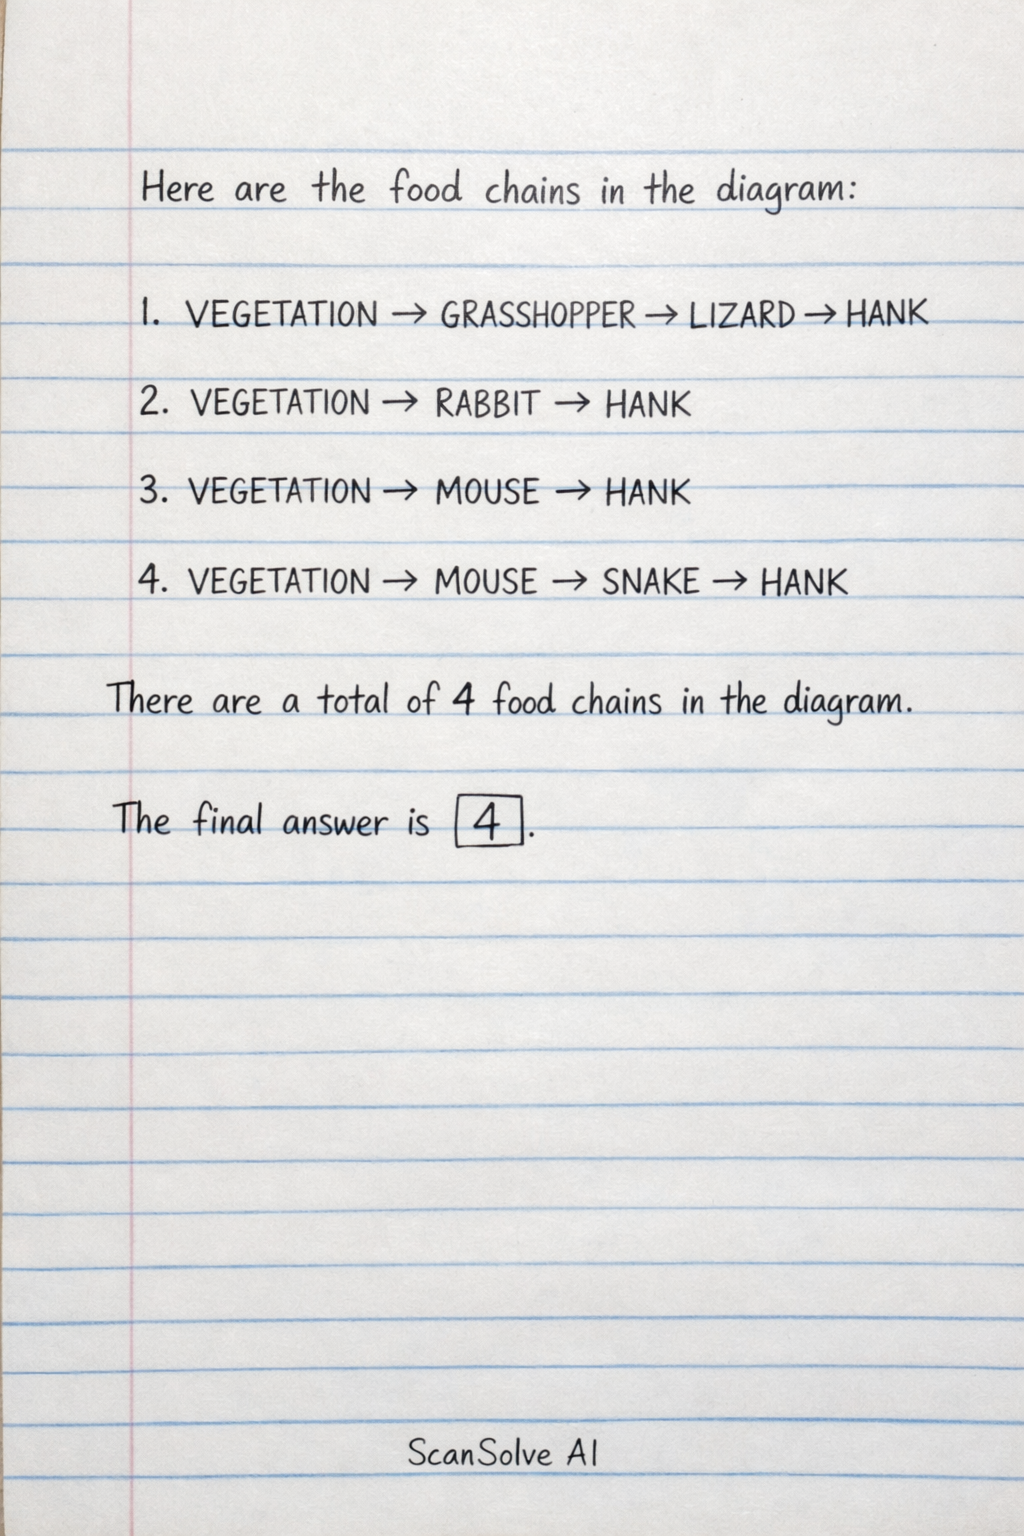 Here are the food chains in the diagram:
1. VEGETATION → GRASSHOPPER → LIZARD → HANK
2. VEGETATION → RABBIT → HANK
3. VEGETATION → MOUSE → HANK
4. VEGETATION → MOUSE → SNAKE → HANK
There are a total of 4 food chains in the diagram.
The final answer is 4.
ScanSolve AI